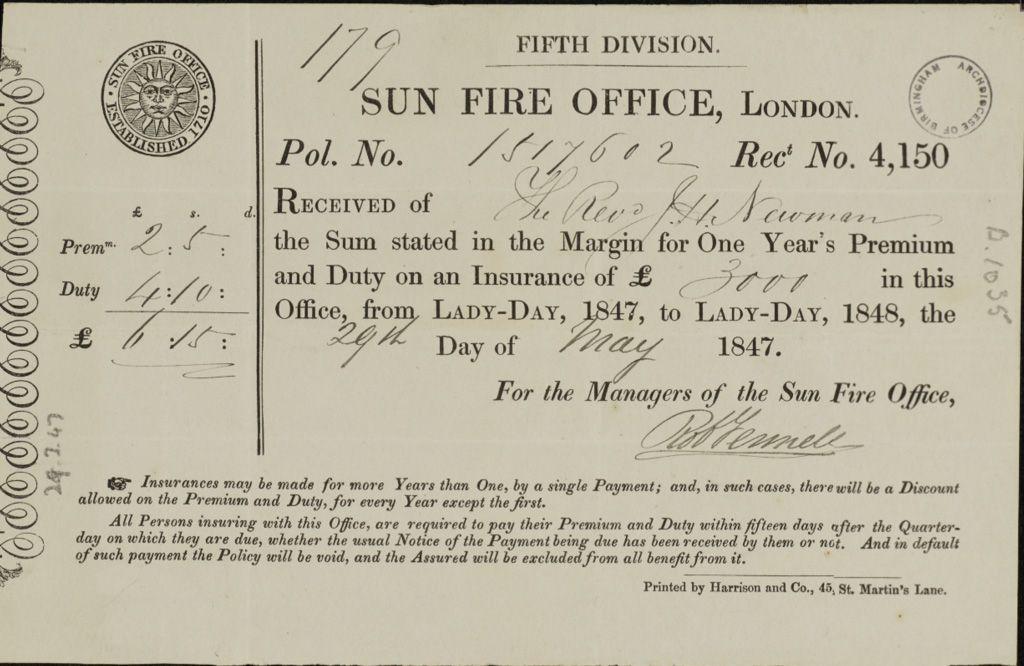 179
FIFTH DIVISION.
· SUN FIRE OFFICE · ESTABLISHED 1710
ARCHDIOCESE OF BIRMINGHAM
SUN FIRE OFFICE, LONDON.
Pol. No. 1517602 Rect No. 4,150
RECEIVED of The Revd J. H. Newman
the Sum stated in the Margin for One Year's Premium
and Duty on an Insurance of £ 3000 in this
Office, from LADY-DAY, 1847, to LADY-DAY, 1848, the
29th Day of May 1847.
For the Managers of the Sun Fire Office,
£ s. d.
Premm. 2 : 5 :
Duty 4 : 10 :
£ 6 : 15 :
B.1035
☞ Insurances may be made for more Years than One, by a single Payment; and, in such cases, there will be a Discount
allowed on the Premium and Duty, for every Year except the first.
All Persons insuring with this Office, are required to pay their Premium and Duty within fifteen days after the Quarter-
day on which they are due, whether the usual Notice of the Payment being due has been received by them or not. And in default
of such payment the Policy will be void, and the Assured will be excluded from all benefit from it.
Printed by Harrison and Co., 45, St. Martin's Lane.